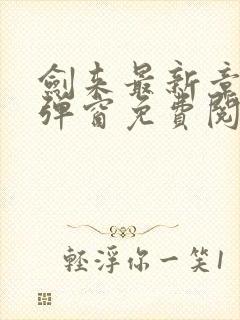 劍来最新章
彈窗免費閱
輕浮你一笑1